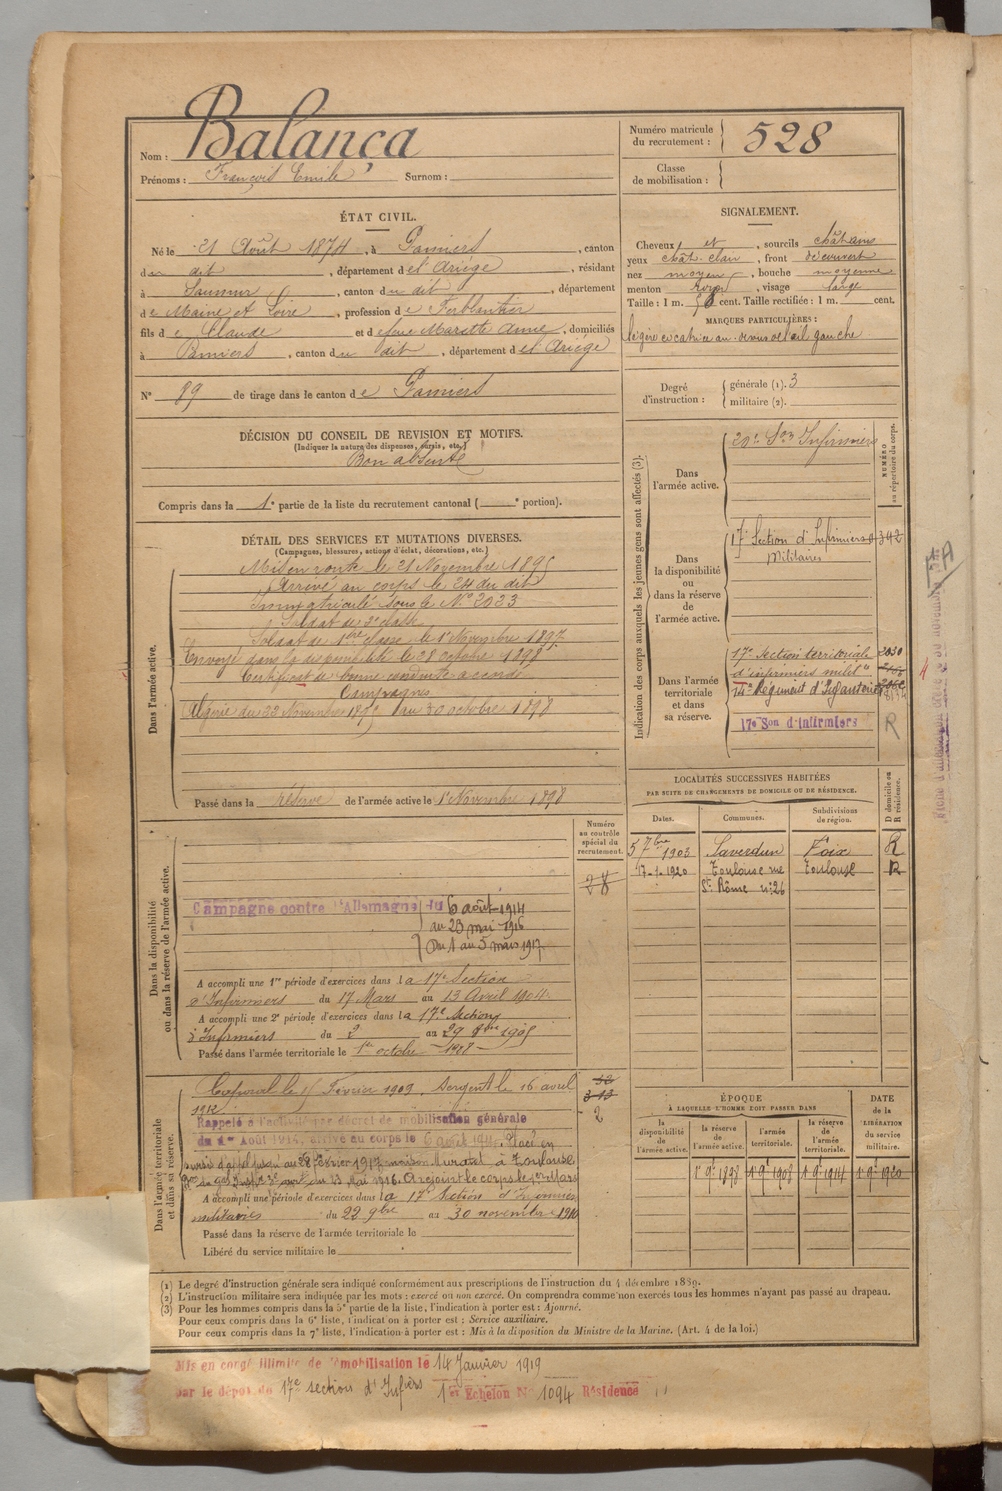 Balança
Nom :
Prénoms : François Emile Surnom :
Numéro matricule du recrutement : 528
Classe de mobilisation :
ÉTAT CIVIL.
Né le 21 Août 1874, à Pamiers, canton
du dit, département de l'Ariège, résidant
à Saumur, canton du dit, département
de Maine et Loire, profession de Ferblantier
fils de Claude et de feue Marette Anne, domiciliés
à Pamiers, canton du dit, département de l'Ariége
N° 89 de tirage dans le canton de Pamiers
SIGNALEMENT.
Cheveux et, sourcils châtains
yeux chât. clair, front découvert
nez moyen, bouche moyenne
menton rond, visage large
Taille : 1 m. cent. Taille rectifiée : 1 m. cent.
MARQUES PARTICULIÈRES :
légère cicatrice au-dessus de l'œil gauche
Degré d'instruction : générale (1). 3
militaire (2).
DÉCISION DU CONSEIL DE REVISION ET MOTIFS.
(Indiquer la nature des dispenses, sursis, etc.)
Bon absent
Compris dans la 1e partie de la liste du recrutement cantonal ( e portion).
DÉTAIL DES SERVICES ET MUTATIONS DIVERSES.
(Campagnes, blessures, actions d'éclat, décorations, etc.)
Dans l'armée active.
Mis en route le 21 Novembre 1895
Arrivé au corps le 24 du dit
Immatriculé sous le N° 2023
Soldat de 2e classe
Soldat de 1ère classe le 1er Novembre 1897
Envoyé dans la disponibilité le 28 octobre 1898
Certificat de bonne conduite accordé
Campagnes
Algérie du 22 Novembre 1895 au 30 octobre 1898
Passé dans la réserve de l'armée active le 1er Novembre 1898
Indication des corps auxquels les jeunes gens sont affectés (3).
NUMÉRO au répertoire du corps.
Dans l'armée active.
20e Son Infirmiers
Dans la disponibilité ou dans la réserve de l'armée active.
17e Section d'Infirmiers 342
Militaires
Dans l'armée territoriale et dans sa réserve.
17e Section territoriale 2030
d'infirmiers milit"
Régiment d'Infanterie
17e Son d'Infirmiers R
LOCALITÉS SUCCESSIVES HABITÉES
PAR SUITE DE CHANGEMENTS DE DOMICILE OU DE RÉSIDENCE.
D domicile ou R résidence.
Dates. Communes. Subdivisions de région.
5 7bre 1903 Saverdun Foix R
17-1-1920 Toulouse rue Toulouse R
St. Rôme n: 26
Dans la disponibilité ou dans la réserve de l'armée active.
Numéro au contrôle spécial du recrutement.
28
Campagne contre l'Allemagne du 6 août 1914
au 23 mai 1916
Du 1 au 5 mars 1917
A accompli une 1re période d'exercices dans la 17e Section
d'Infirmiers du 17 Mars au 13 Avril 1904
A accompli une 2e période d'exercices dans la 17e Section
d'Infirmiers du 2 au 29 1905
Passé dans l'armée territoriale le 1er octobre 1908
Dans l'armée territoriale et dans sa réserve.
Caporal le Février 1909. Sergent le 16 avril
1912
2
Rappelé à l'activité par décret de mobilisation générale
du 1er Août 1914, arrivé au corps le 6 août 1914. Placé en
sursis d'appel jusqu'au 28 février 1917 maison Muratet à Toulouse
du 23 Mai 1916. A rejoint le corps le 1er Mars
A accompli une période d'exercices dans la 17e Section d'Infirmiers
militaires du 22 9bre au 30 novembre 1910
Passé dans la réserve de l'armée territoriale le
Libéré du service militaire le
ÉPOQUE
À LAQUELLE L'HOMME DOIT PASSER DANS
DATE de la LIBÉRATION du service militaire.
la disponibilité de l'armée active.
la réserve de l'armée active.
l'armée territoriale.
la réserve de l'armée territoriale.
1er 9bre 1898 1er 9bre 1908 1er 9bre 1914 1er 9bre 1920
(1) Le degré d'instruction générale sera indiqué conformément aux prescriptions de l'instruction du 4 décembre 1889.
(2) L'instruction militaire sera indiquée par les mots : exercé ou non exercé. On comprendra comme non exercés tous les hommes n'ayant pas passé au drapeau.
(3) Pour les hommes compris dans la 5e partie de la liste, l'indication à porter est : Ajourné.
Pour ceux compris dans la 6e liste, l'indication à porter est : Service auxiliaire.
Pour ceux compris dans la 7e liste, l'indication à porter est : Mis à la disposition du Ministre de la Marine. (Art. 4 de la loi.)
Mis en congé illimité de démobilisation le 14 Janvier 1919
par le dépôt de 17e section d'Infiers 1er Echelon N° 1094 Résidence